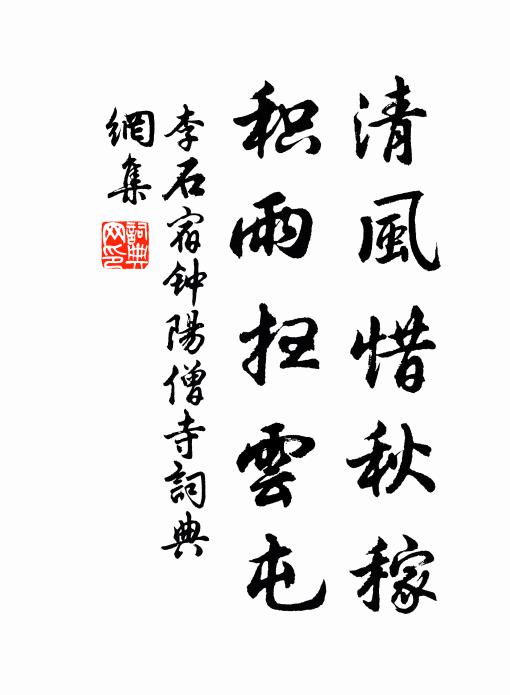 清風惜秋稼
积雨扫雲屯
李石宿钟陽僧寺詞典
網集
詞典
网印